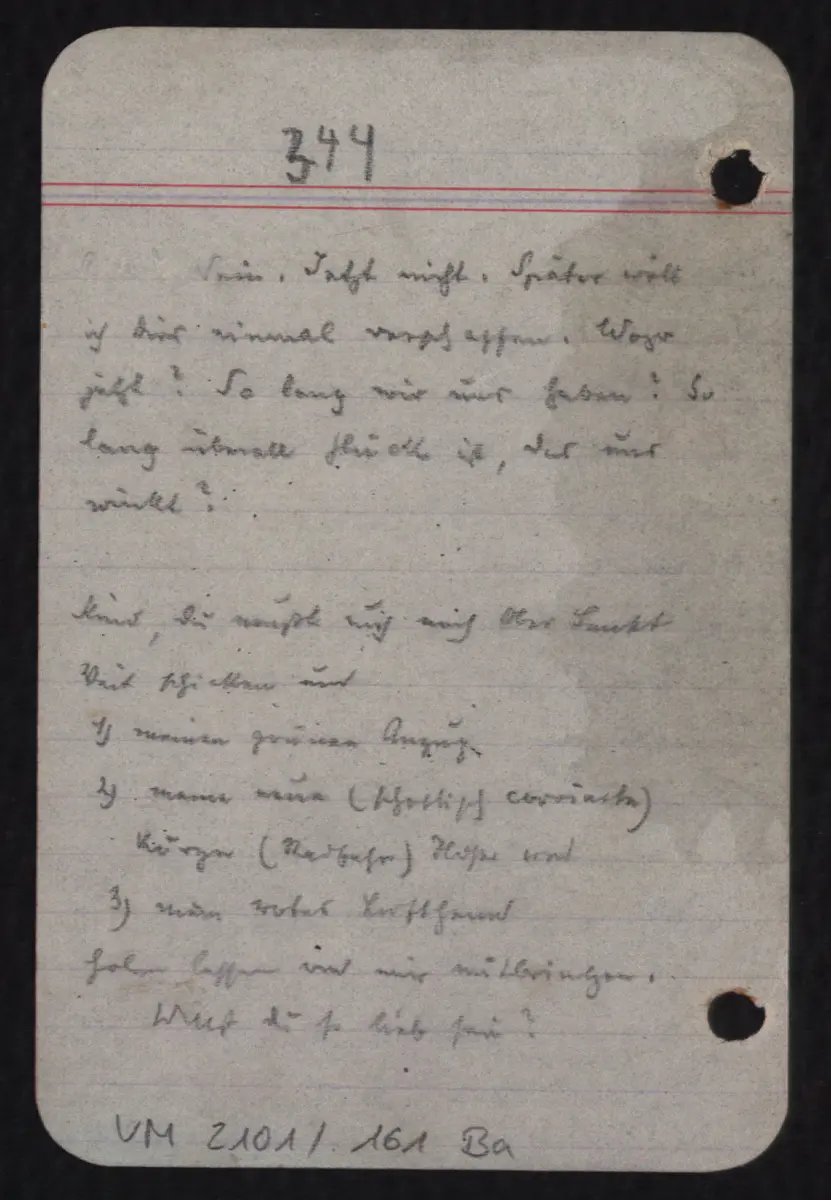 344
Nein. Jetzt nicht. Später will
ich Dies einmal verschaffen. Wozu
jetzt? So lang wir uns haben? So
lang überall Glück ist, das uns
winkt?
Kind, du mußt mich nach Ober Sankt
Veit schicken und
1) meinen grünen Anzug
2) meine neue (schottisch carrierte)
kurze (Radfahr) Hose und
3) mein rotes Lufthemd
holen lassen und mir mitbringen.
Willst du so lieb sein?
VM 2101/.161 Ba